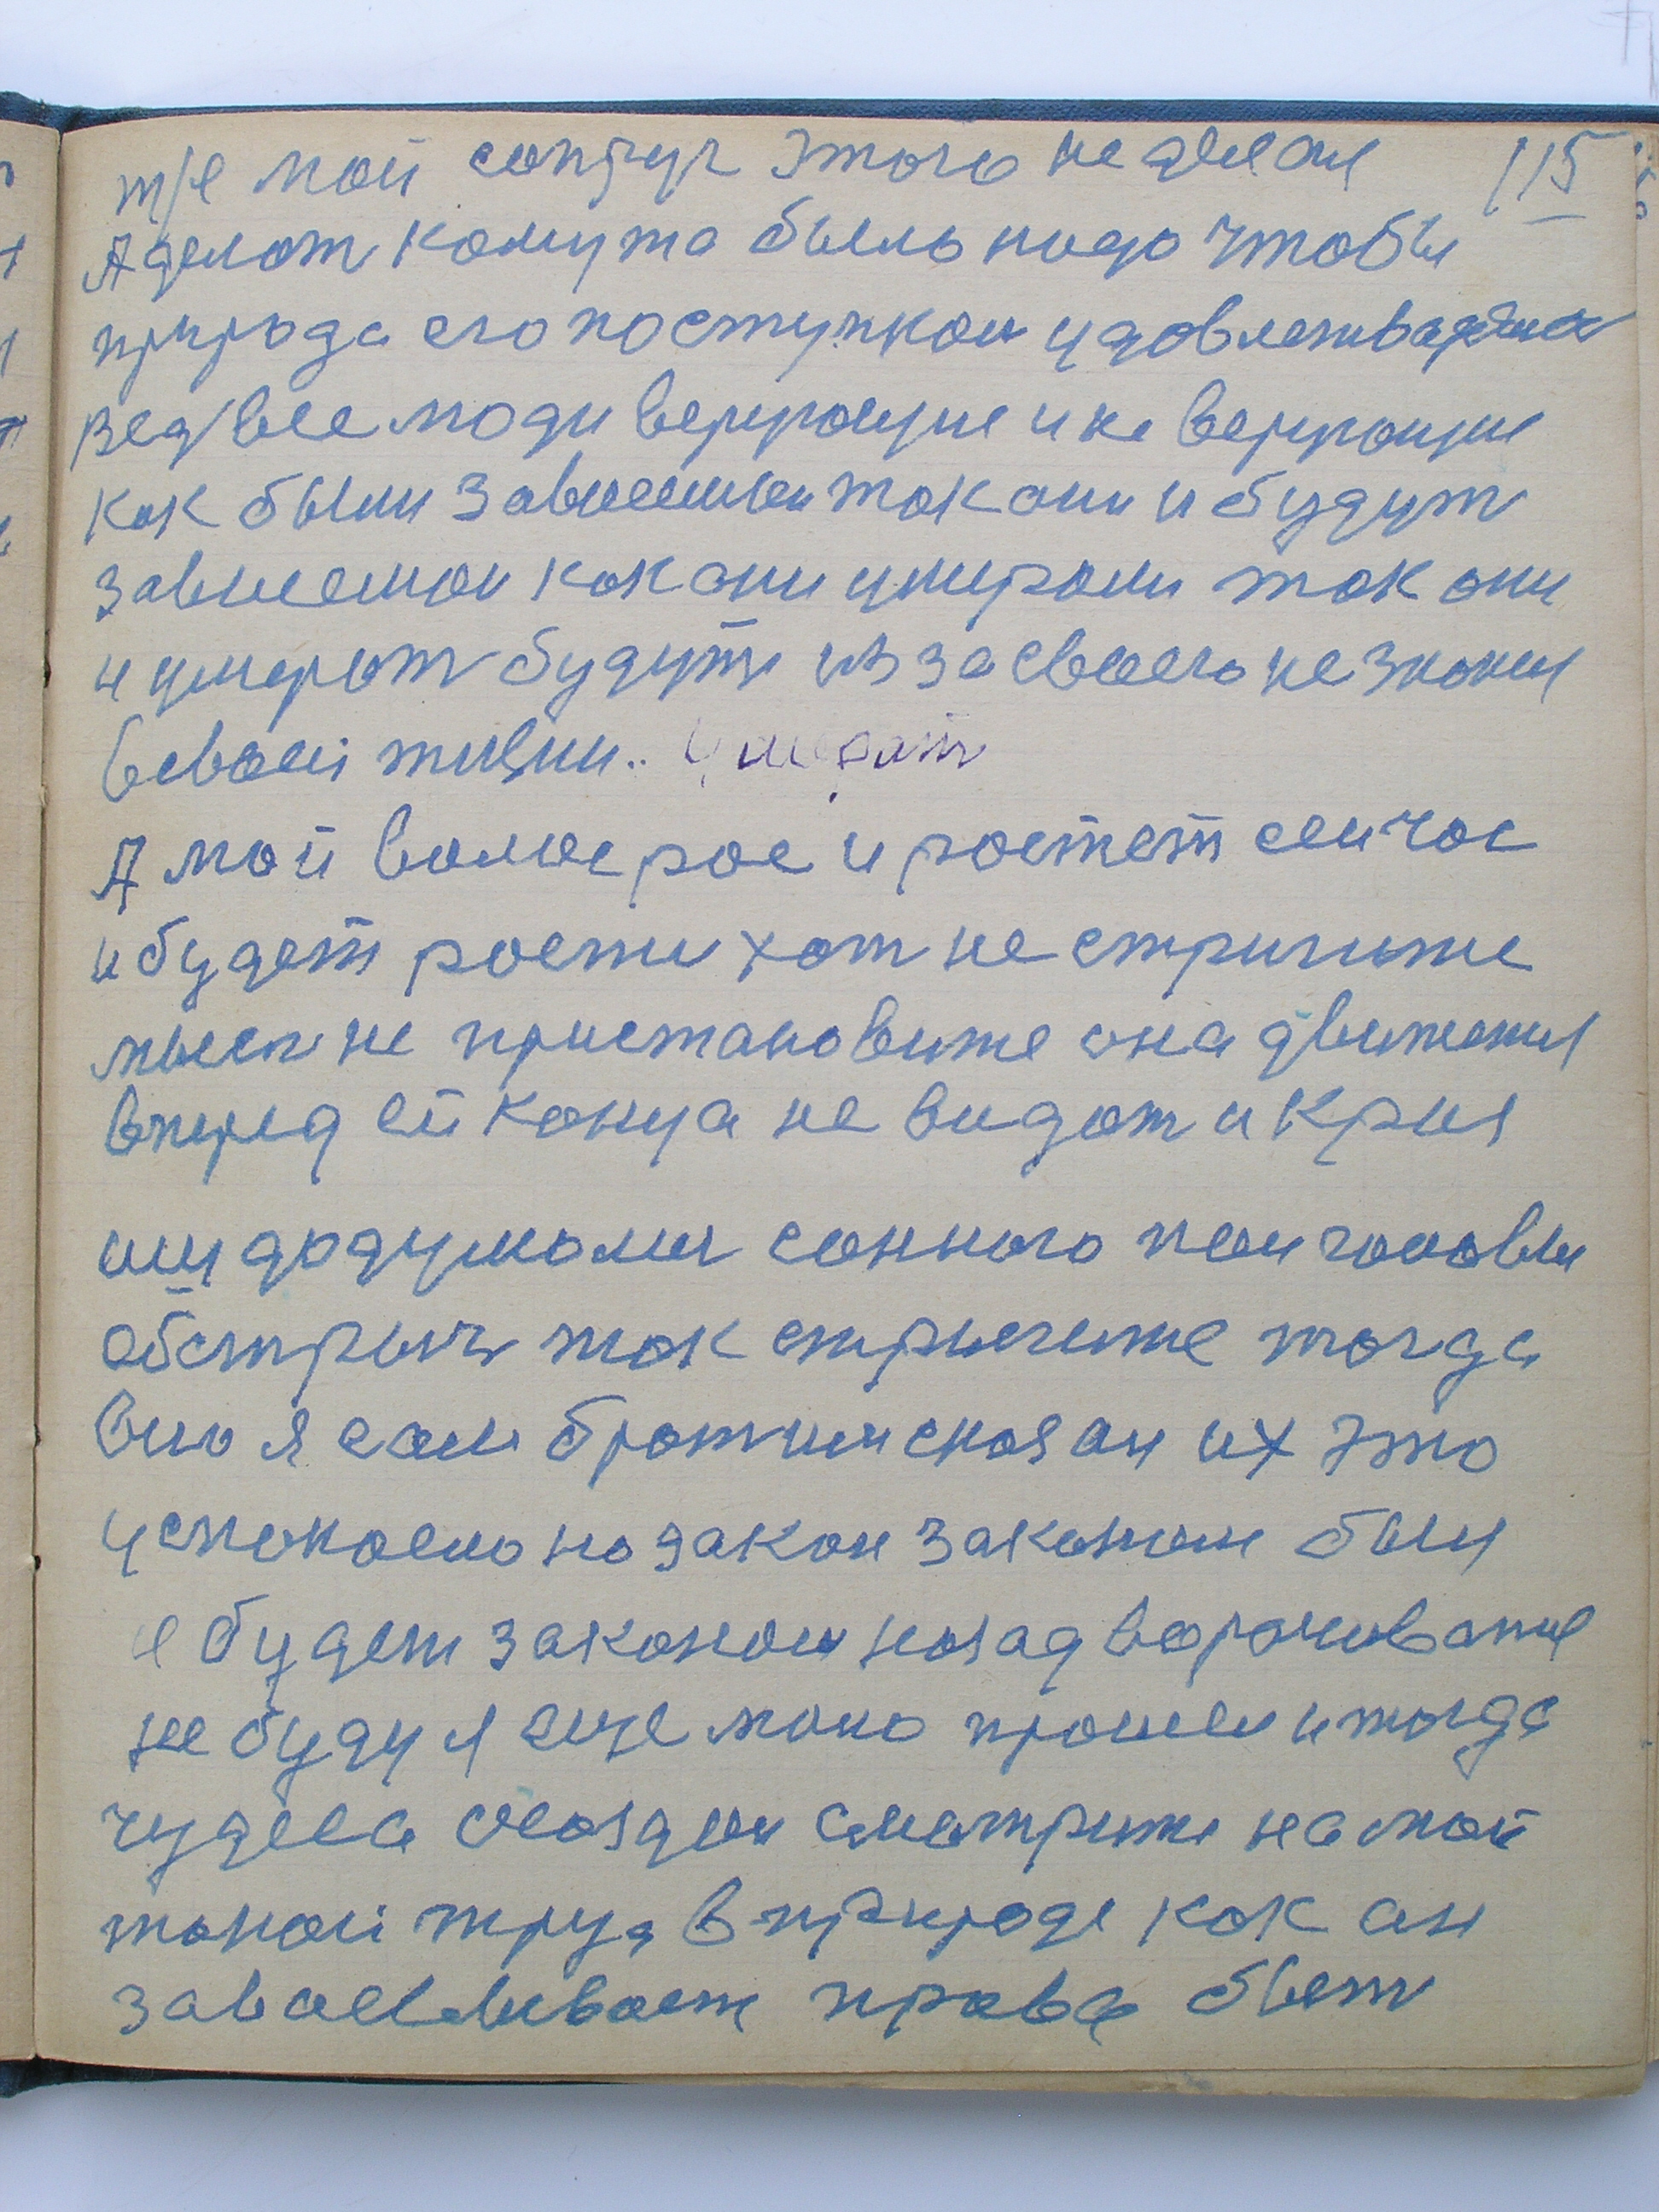 т/е мой сопруг этого не делал 115
А делат комута было надо чтобы
природа его поступком удовлетваряла
Вед все люди верующие и не верующие
как были зависемыи так они и будут
зависемыи как они умирали так они
и умерат будут из за своего не знания
в своей жизни.. умерат
А мой волос рос и ростет сеичас
и будет рости хот не стригите
мысл не пристановите она движения
вперед ей конца не видат и края
им додумалис сонного
обстрыч так стрыгите тогда
я сам братцы сказал их это
успокоело но закон законом был
и будет законом назад ворочивание
не буду я еще мало прошел и тогда
чудеса создам сматрите на мой
такой труд в природе как он
заваевывает права бьет